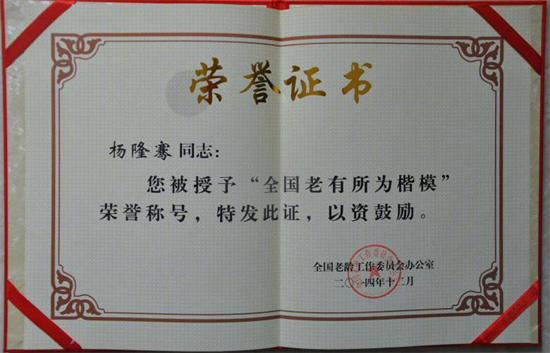 荣誉证书
杨隆骞 同志：
您被授予“全国老有所为楷模”
荣誉称号，特发此证，以资鼓励。
全国老龄工作委员会办公室
二〇一四年十二月